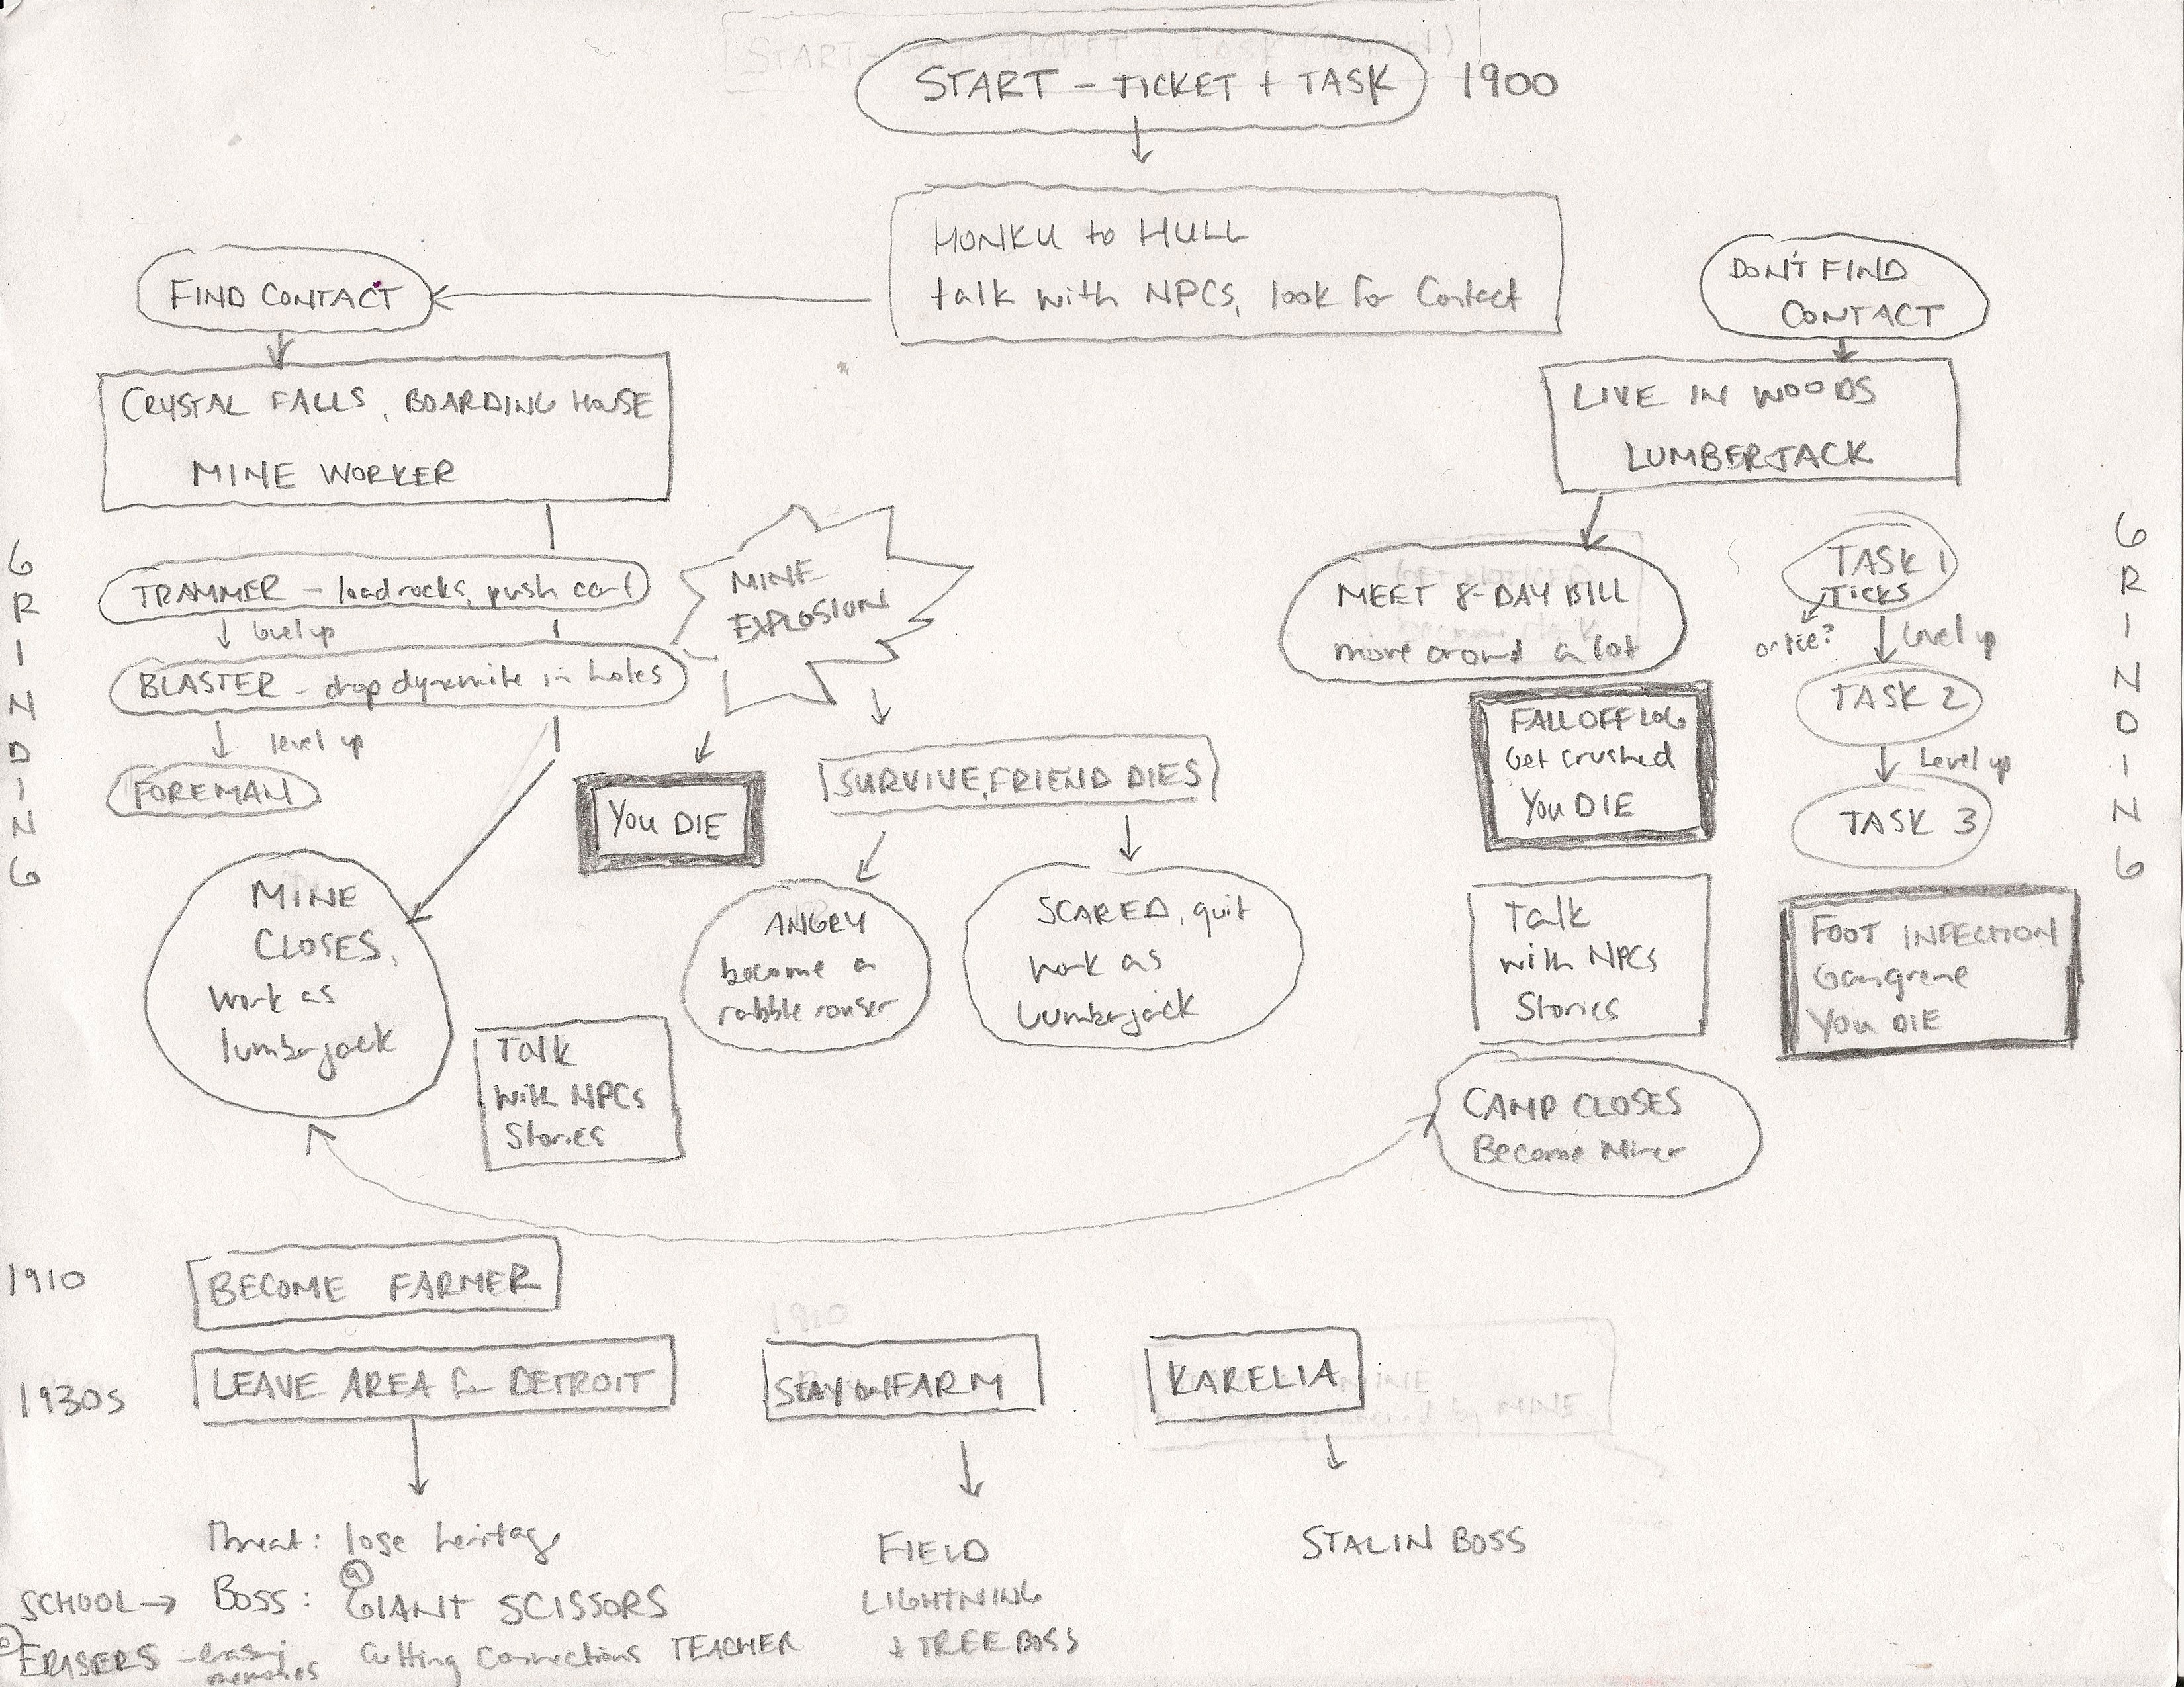 START - TICKET + TASK 1900
HONKU to HULL
talk with NPCS, look for Contact
FIND CONTACT
DON'T FIND
CONTACT
CRYSTAL FALLS, BOARDING HOUSE
MINE WORKER
LIVE IN WOODS
LUMBERJACK
GRINDING
TRAMMER - load rocks, push cart
level up
BLASTER - drop dynamite in holes
level up
FOREMAN
MINE
EXPLOSION
YOU DIE
SURVIVE, FRIEND DIES
ANGRY
become a
rabble rouser
SCARED, quit
work as
Lumberjack
MINE
CLOSES,
work as
lumberjack
Talk
with NPCs
Stories
MEET 8-DAY BILL
move around a lot
FALL OFF LOG
Get crushed
You DIE
Talk
with NPCs
Stories
CAMP CLOSES
Become Miner
TASK 1
TICKS
or lice?
Level up
TASK 2
Level up
TASK 3
FOOT INFECTION
Gangrene
You DIE
GRINDING
1910
BECOME FARMER
1930s
LEAVE AREA for DETROIT
STAY on FARM
KARELIA
Threat: lose heritage
SCHOOL → Boss: GIANT SCISSORS
ERASERS - erasing memories
Cutting Connections TEACHER
FIELD
LIGHTNING
+ TREE BOSS
STALIN BOSS